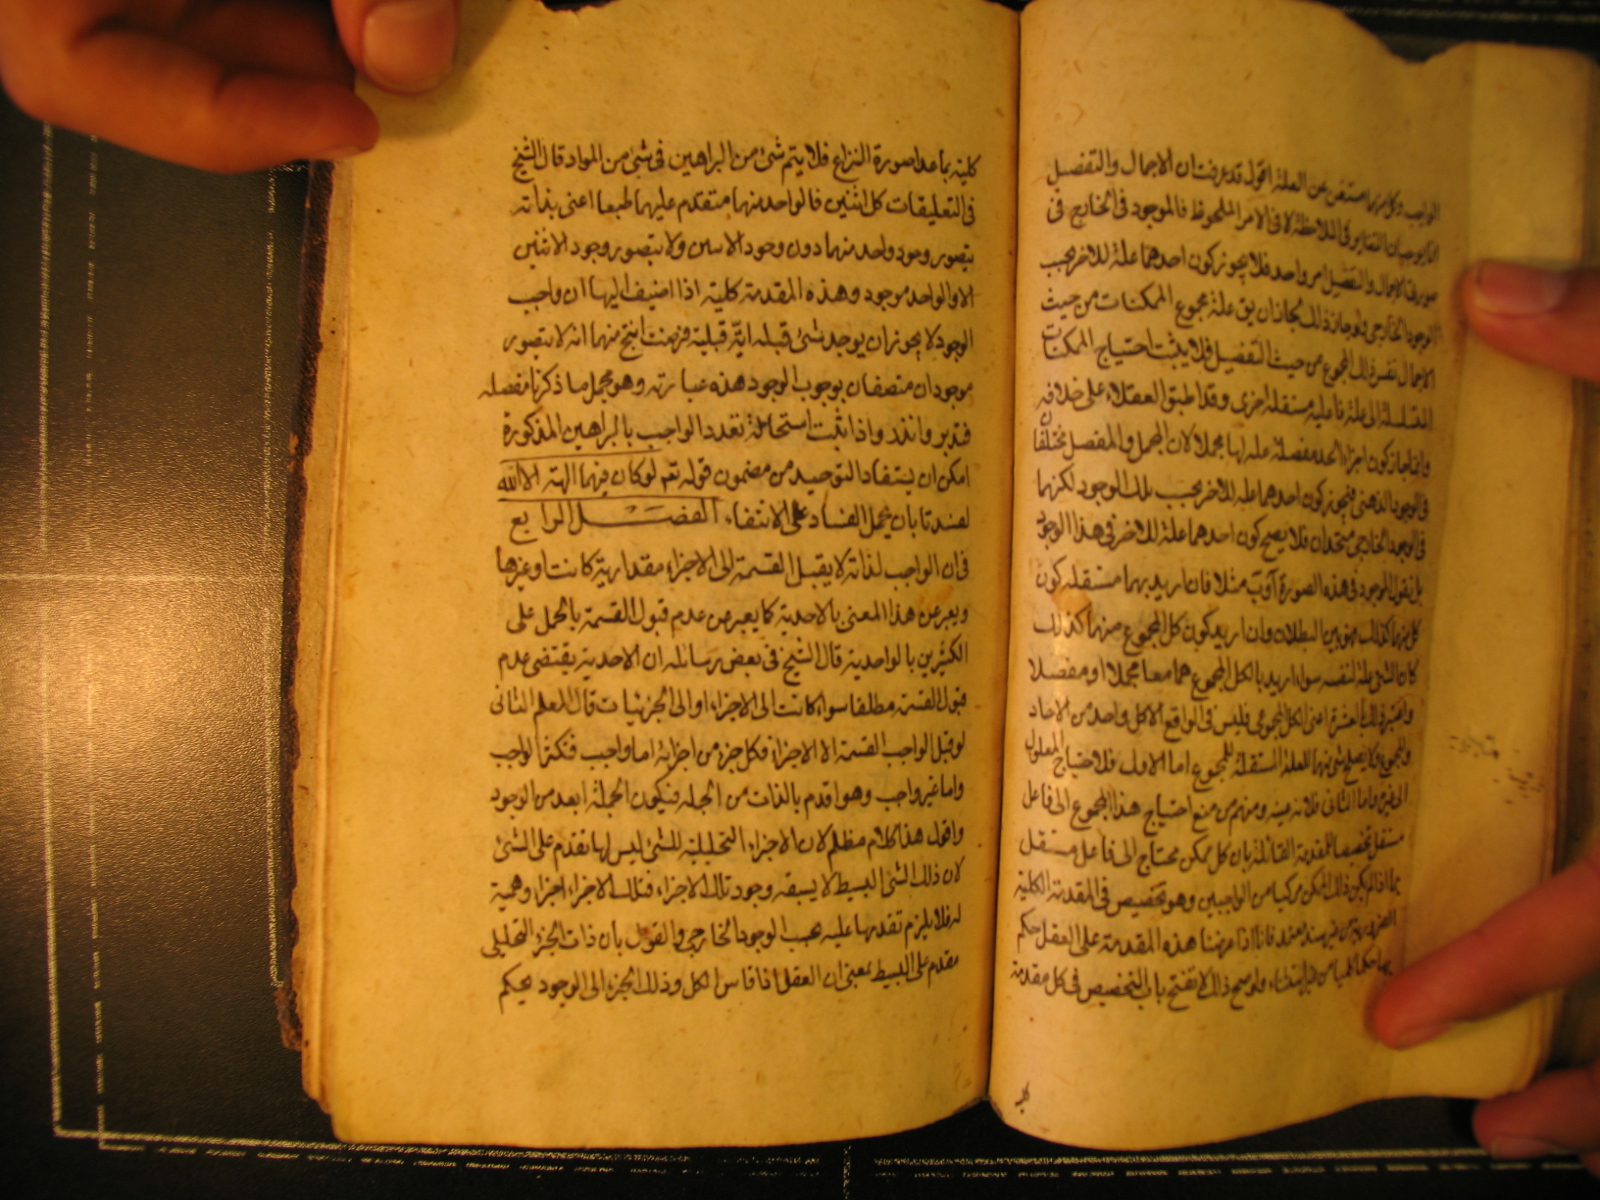 الواجب وكامربها مستغن عن العلة اقول قد عرفت ان الاجمال والتفصيل
انما يوجبان التغاير فى الملاحظة لا فى الامر الملحوظ فالموجود فى الخارج فى
صورتى الاجمال والتفصيل امر واحد فلا يجوز كون احدهما علة للاخر بحسب
الوجود الخارجى ولو جاز ذلك لجاز ان يق علة مجموع الممكنات من حيث
الاجمال نفس ذلك المجموع من حيث التفصيل فلا يثبت احتياج الممكنات
المتسلسلة الى علة فاعلية مستقلة اخرى وقد اطبق العقلاء على خلافه
وانما جاز كون اجزاء الحد مفصلة علة لها مجملا لان المجمل والمفصل مختلفان
فى الوجود الذهنى فيجوز كون احدهما علة للاخر بحسب ذلك الوجود لكنهما
فى الوجود الخارجى متحدان فلا يصح كون احدهما علة للاخر فى هذا الوجود
بل نقول الموجود فى هذه الصورة آ وب مثلا فان اريد بهما مستقلة كون
كل منهما كذلك فهو بين البطلان وان اريد كون كل المجموع منهما كذلك
كان الشئ علة لنفسه سواء اريد بالكل المجموع هما معا مجملا او مفصلا
فليس فى الواقع الا كل واحد من الاحاد
والمجموع ولا يصلح شئ منهما للعلة المستقلة للمجموع اما الاول فلاحتياج المعلول
واما الثانى فلانه عينه ومنهم من منع احتياج هذا المجموع الى فاعل
مستقل تخصيصا للمقدمة القائلة بان كل ممكن محتاج الى فاعل مستقل
بما اذا لم يكن ذلك الممكن مركبا من الواجبين وهو تخصيص فى المقدمة الكلية
فانا اذا عرضنا هذه المقدمة على العقل حكم
بها حكما كليا من غير استثناء ولو صح ذلك لانفتح باب التخصيص فى كل مقدمة
كلية
كلية بما عدا صورة النزاع فلا يتم شئ من البراهين فى شئ من المواد قال الشيخ
فى التعليقات كل اثنين فالواحد منهما متقدم عليهما طبعا اعنى بذاته
يتصور وجود واحد منهما دون وجود الاثنين ولا يتصور وجود الاثنين
الا والواحد موجود وهذه المقدمة كلية اذا اضيف اليها ان واجب
الوجود لا يجوز ان يوجد شئ قبله اية قبلية فرضت انتج منهما انه لا يتصور
موجودان متصفان بوجوب الوجود هذه عبارته وهو مجمل ما ذكرنا مفصله
فتدبر واذا ثبت استحالة تعدد الواجب بالبراهين المذكورة
امكن ان يستفاد التوحيد من مضمون قوله تع لو كان فيهما الهة الا الله
لفسدتا بان يحمل الفساد على الانتفاء الفصل الرابع
فى ان الواجب لذاته لا يقبل القسمة الى الاجزاء مقدارية كانت او غيرها
ويعبر عن هذا المعنى بالاحدية كما يعبر عن عدم قبول القسمة بالحمل على
الكثيرين بالواحدية قال الشيخ فى بعض رسائله ان الاحدية يقتضى عدم
قبول القسمة مطلقا سواء كانت الى الاجزاء او الى الجزئيات قال المعلم الثانى
لو قبل الواجب القسمة الى الاجزاء فكل جزء من اجزائه اما واجب فتكثر الواجب
واما غير واجب وهو اقدم بالذات من الجملة فيكون الجملة ابعد من الوجود
واقول هذا كلام مظلم لان الاجزاء التحليلية للشئ ليس لها تقدم على الشئ
لان ذلك الشئ البسيط لا يسبقه وجود تلك الاجزاء فتلك الاجزاء اجزاء وهمية
له فلا يلزم تقدمها عليه بحسب الوجود الخارجى والقول بان ذات الجزء التحليلى
مقدم على البسيط بمعنى ان العقل اذا قاس الكل وذلك الجزء الى الوجود يحكم